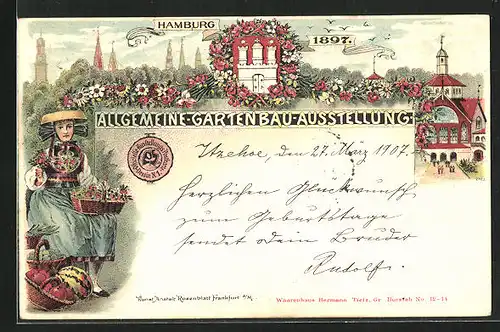 HAMBURG
1897.
ALLGEMEINE-GARTENBAU-AUSSTELLUNG
Itzehoe, den 27. März 1907.
Herzlichen Glückwunsch
zum Geburtstage
sendet Dein Bruder
Rudolf.
Kunst Anstalt Rosenblatt Frankfurt a/M.
Waarenhaus Hermann Tietz, Gr. Burstah No. 12-14